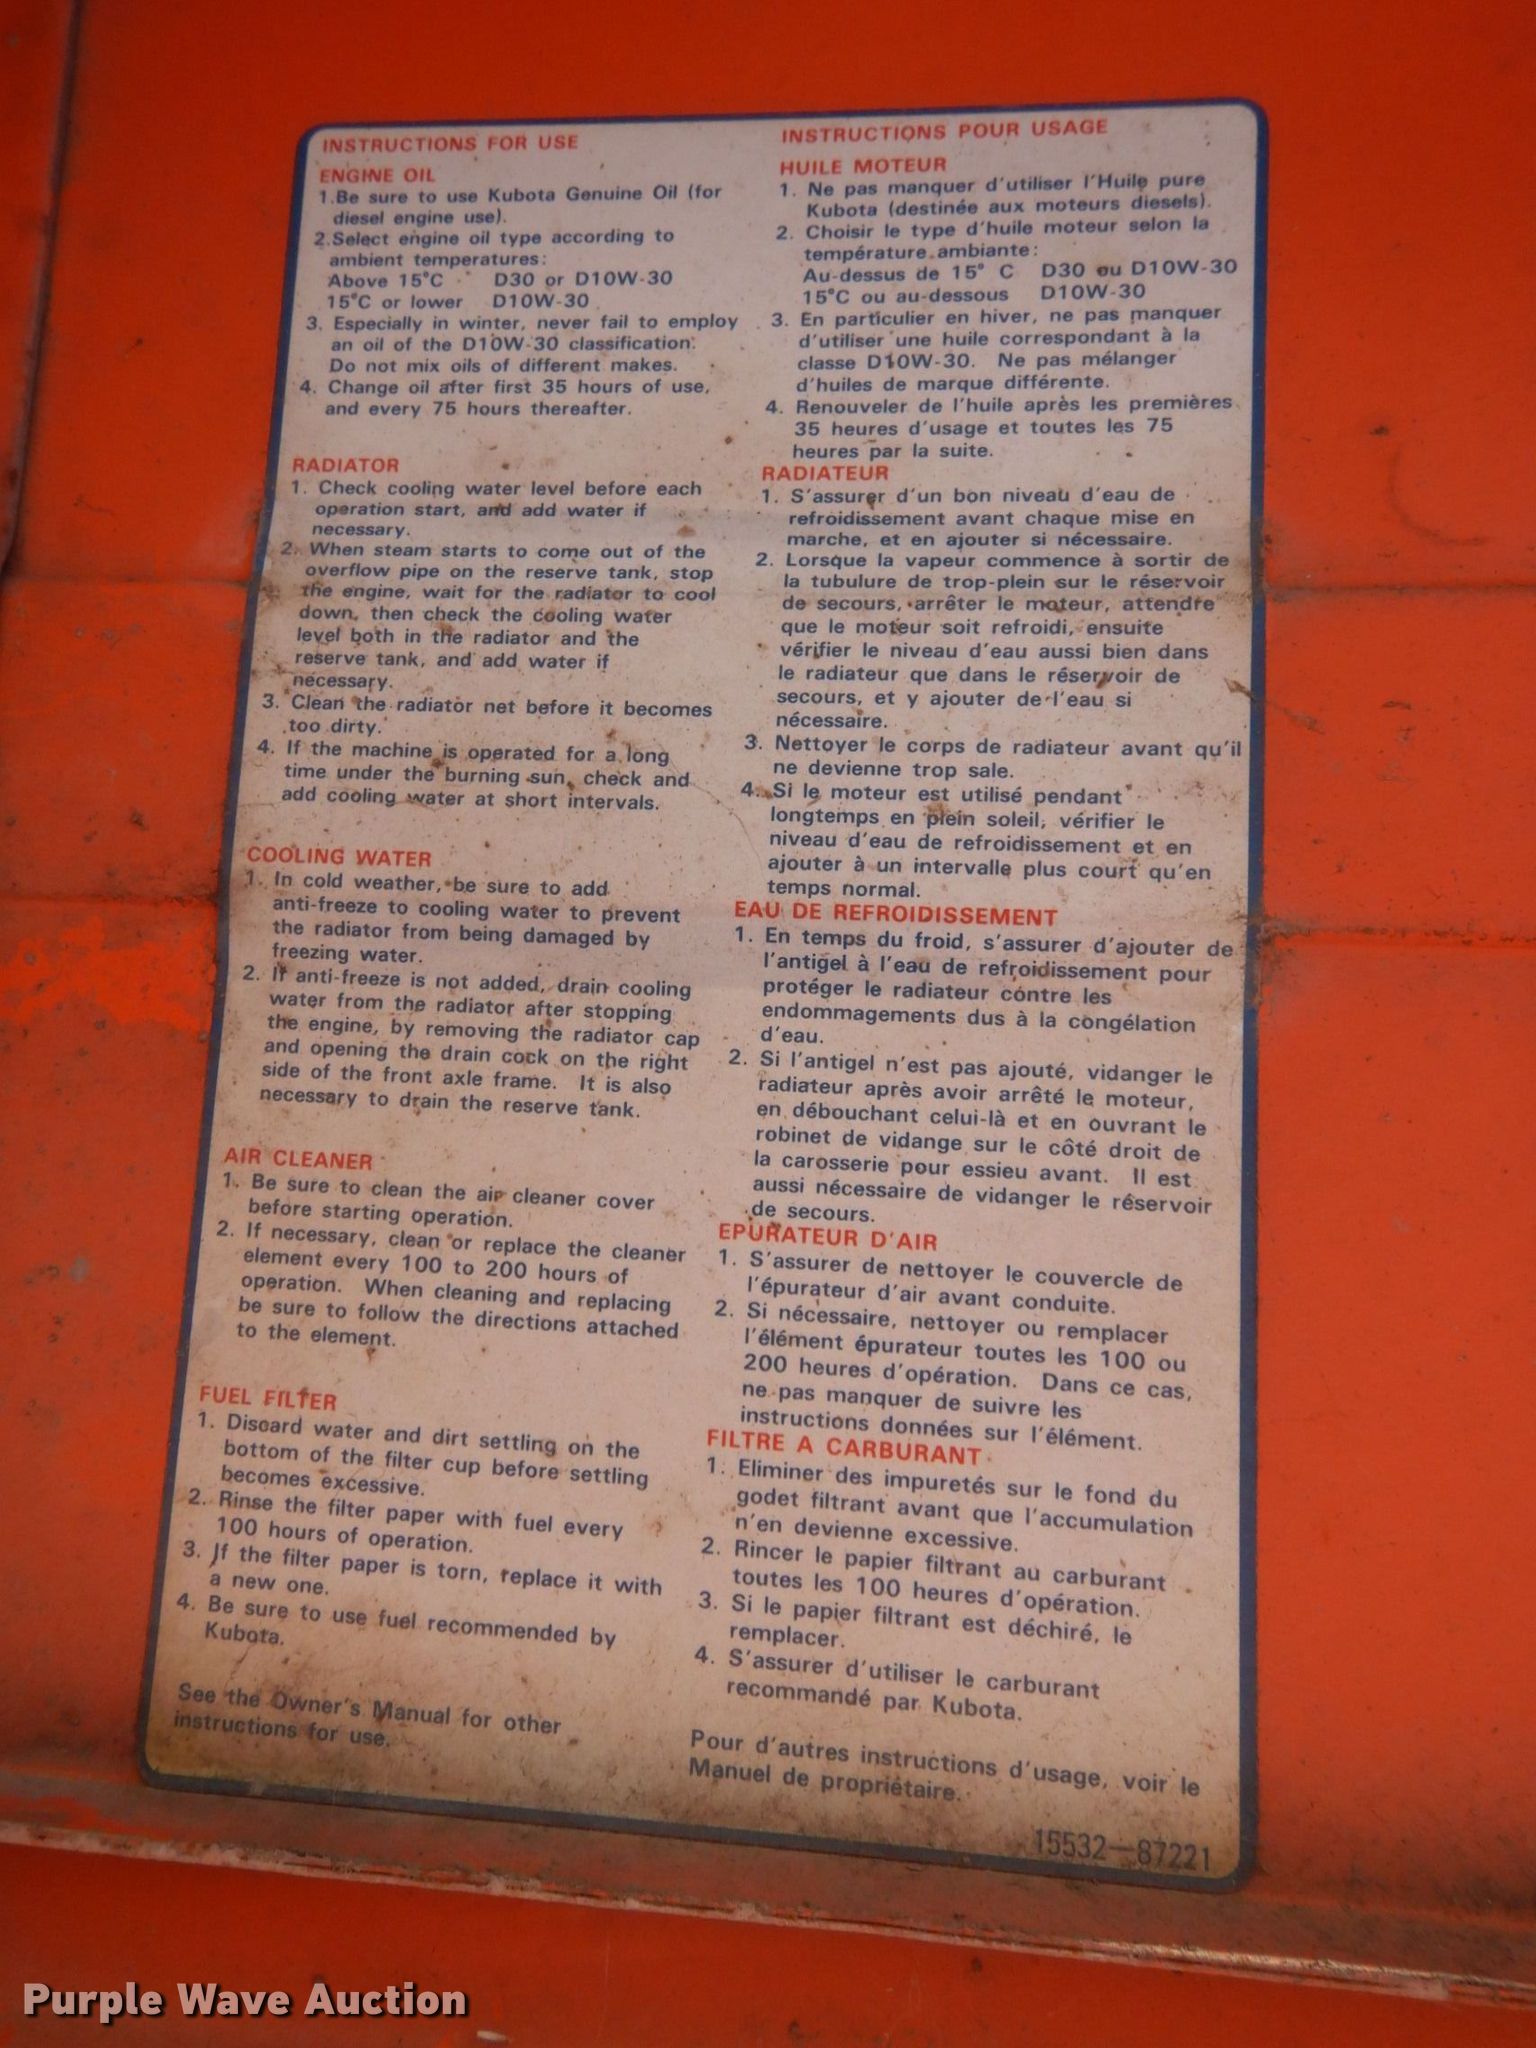 INSTRUCTIONS FOR USE
ENGINE OIL
1.Be sure to use Kubota Genuine Oil (for
diesel engine use).
2.Select engine oil type according to
ambient temperatures:
Above 15°C D30 or D10W-30
15°C or lower D10W-30
3. Especially in winter, never fail to employ
an oil of the D10W-30 classification.
Do not mix oils of different makes.
4. Change oil after first 35 hours of use,
and every 75 hours thereafter.
RADIATOR
1. Check cooling water level before each
operation start, and add water if
necessary.
2. When steam starts to come out of the
overflow pipe on the reserve tank, stop
the engine, wait for the radiator to cool
down, then check the cooling water
level both in the radiator and the
reserve tank, and add water if
necessary.
3. Clean the radiator net before it becomes
too dirty.
4. If the machine is operated for a long
time under the burning sun, check and
add cooling water at short intervals.
COOLING WATER
1. In cold weather, be sure to add
anti-freeze to cooling water to prevent
the radiator from being damaged by
freezing water.
2. If anti-freeze is not added, drain cooling
water from the radiator after stopping
the engine, by removing the radiator cap
and opening the drain cock on the right
side of the front axle frame. It is also
necessary to drain the reserve tank.
AIR CLEANER
1. Be sure to clean the air cleaner cover
before starting operation.
2. If necessary, clean or replace the cleaner
element every 100 to 200 hours of
operation. When cleaning and replacing
be sure to follow the directions attached
to the element.
FUEL FILTER
1. Discard water and dirt settling on the
bottom of the filter cup before settling
becomes excessive.
2. Rinse the filter paper with fuel every
100 hours of operation.
3. If the filter paper is torn, replace it with
a new one.
4. Be sure to use fuel recommended by
Kubota.
See the Owner's Manual for other
instructions for use.
INSTRUCTIONS POUR USAGE
HUILE MOTEUR
1. Ne pas manquer d'utiliser l'Huile pure
Kubota (destinée aux moteurs diesels).
2. Choisir le type d'huile moteur selon la
température ambiante:
Au-dessus de 15° C D30 ou D10W-30
15°C ou au-dessous D10W-30
3. En particulier en hiver, ne pas manquer
d'utiliser une huile correspondant à la
classe D10W-30. Ne pas mélanger
d'huiles de marque différente.
4. Renouveler de l'huile après les premières
35 heures d'usage et toutes les 75
heures par la suite.
RADIATEUR
1. S'assurer d'un bon niveau d'eau de
refroidissement avant chaque mise en
marche, et en ajouter si nécessaire.
2. Lorsque la vapeur commence à sortir de
la tubulure de trop-plein sur le réservoir
de secours, arrêter le moteur, attendre
que le moteur soit refroidi, ensuite
vérifier le niveau d'eau aussi bien dans
le radiateur que dans le réservoir de
secours, et y ajouter de l'eau si
nécessaire.
3. Nettoyer le corps de radiateur avant qu'il
ne devienne trop sale.
4. Si le moteur est utilisé pendant
longtemps en plein soleil, vérifier le
niveau d'eau de refroidissement et en
ajouter à un intervalle plus court qu'en
temps normal.
EAU DE REFROIDISSEMENT
1. En temps du froid, s'assurer d'ajouter de
l'antigel à l'eau de refroidissement pour
protéger le radiateur contre les
endommagements dus à la congélation
d'eau.
2. Si l'antigel n'est pas ajouté, vidanger le
radiateur après avoir arrêté le moteur,
en débouchant celui-là et en ouvrant le
robinet de vidange sur le côté droit de
la carosserie pour essieu avant. Il est
aussi nécessaire de vidanger le réservoir
de secours.
EPURATEUR D'AIR
1. S'assurer de nettoyer le couvercle de
l'épurateur d'air avant conduite.
2. Si nécessaire, nettoyer ou remplacer
l'élément épurateur toutes les 100 ou
200 heures d'opération. Dans ce cas,
ne pas manquer de suivre les
instructions données sur l'élément.
FILTRE A CARBURANT
1. Eliminer des impuretés sur le fond du
godet filtrant avant que l'accumulation
n'en devienne excessive.
2. Rincer le papier filtrant au carburant
toutes les 100 heures d'opération.
3. Si le papier filtrant est déchiré, le
remplacer.
4. S'assurer d'utiliser le carburant
recommandé par Kubota.
Pour d'autres instructions d'usage, voir le
Manuel de propriétaire.
15532—87221
Purple Wave Auction